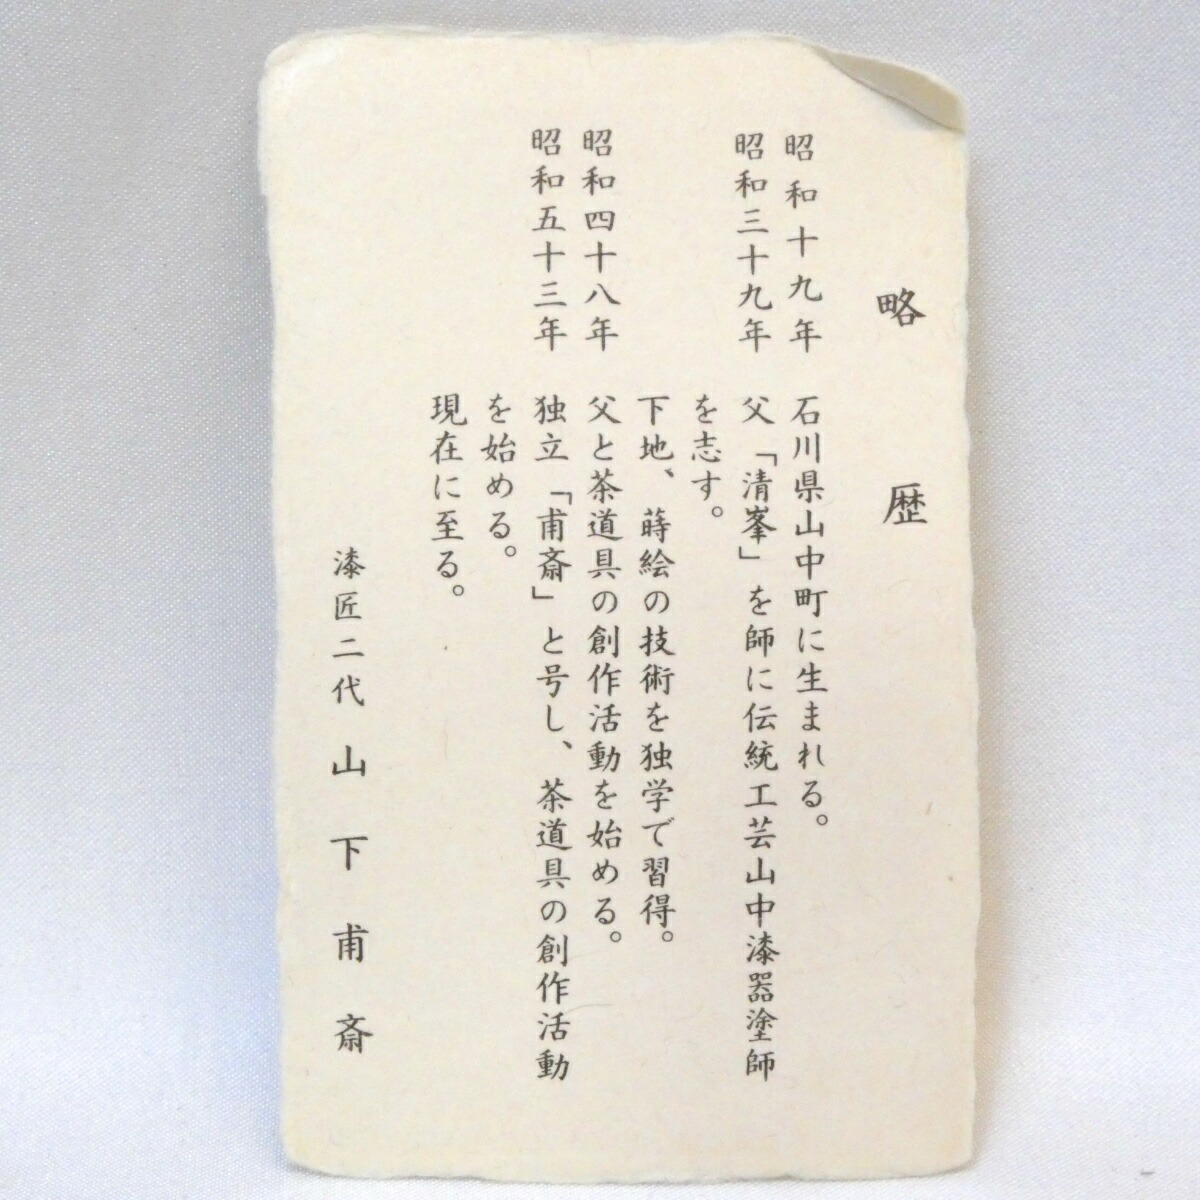 略歴
昭和十九年 石川県山中町に生まれる。
昭和三十九年 父「清峯」を師に伝統工芸山中漆器塗師
を志す。
下地、蒔絵の技術を独学で習得。
昭和四十八年 父と茶道具の創作活動を始める。
昭和五十三年 独立「甫斎」と号し、茶道具の創作活動
を始める。
現在に至る。
漆匠二代 山下甫斎